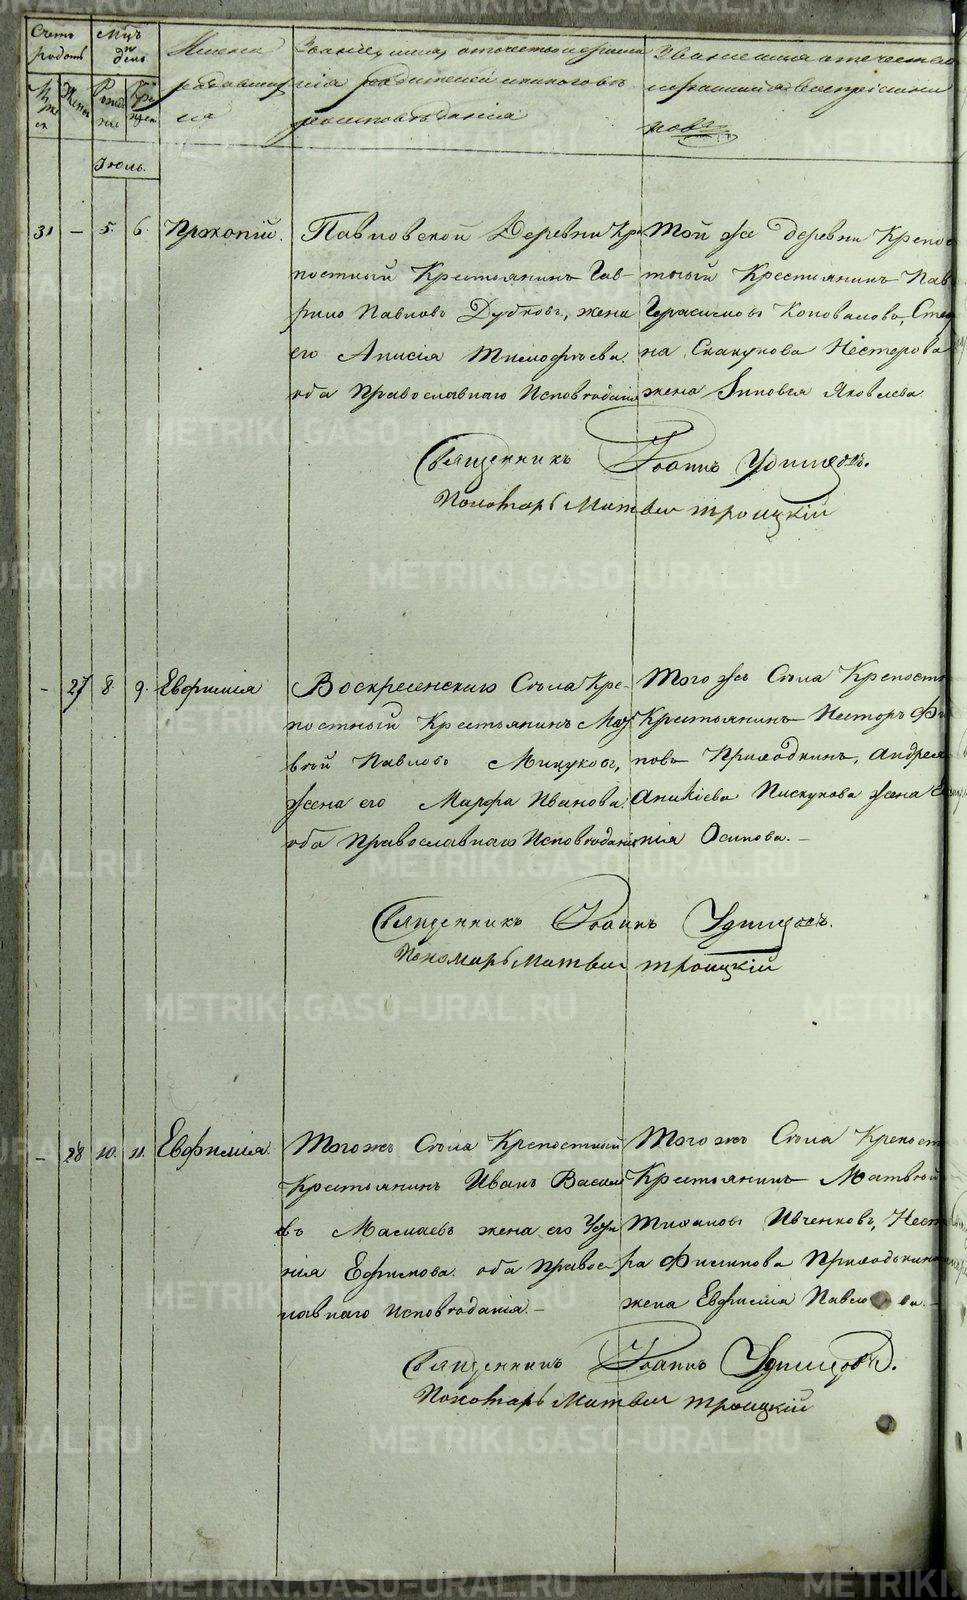 Счетъ
родовъ
Мцъ
и
день
Имена
родившихся
Званіе, имя, отчество и фамилія родителей и какого
вѣроисповѣданія
Званіе имя отчество и
фамилія воспріемниковъ
Іюль.
31 — 5. 6. Прокопій. Павловской Деревни Кре
постный Крестьянинъ Гав-
рило Павловъ Дубковъ, жена
его Анисія Тимофѣева.
оба Православнаго Исповѣданія
Той же деревни Крепос
тный Крестьянинъ Пав
Герасимовъ Коноваловъ, Степ
на Скакунова Нестерова
жена Зиновья Яковлева.
Священникъ Іоаннъ Удинцовъ.
Пономарь Матвѣй Троицкій
— 27 8. 9. Евфимія Воскресенскаго Села Кре-
постный Крестьянинъ Мат
вѣй Павловъ Мицуковъ,
жена его Марфа Иванова.
оба Православнаго Исповѣданія
Того жъ Села Крепостн
Крестьянинъ Несторъ Фи
повъ Приходкинъ, Андрея
Аникіева Пискунова жена Ев
нія Осипова. —
Священникъ Іоаннъ Удинцовъ.
Пономарь Матвѣй Троицкій
— 28 10. 11. Евфимія. Того жъ Села Крепостный
Крестьянинъ Иванъ Василь
въ Мамаевъ жена его
нія Ефимова. оба Правос-
лавнаго Исповѣданія. —
Того жъ Села Крепост
Крестьянинъ Матвѣй
Тихановъ Ивченковъ, Нест
ра Филипова Приходькина
жена Евфимія Павлова. —
Священникъ Іоаннъ Удинцовъ.
Пономарь Матвѣй Троицкій
METRIKI.GASO-URAL.RU